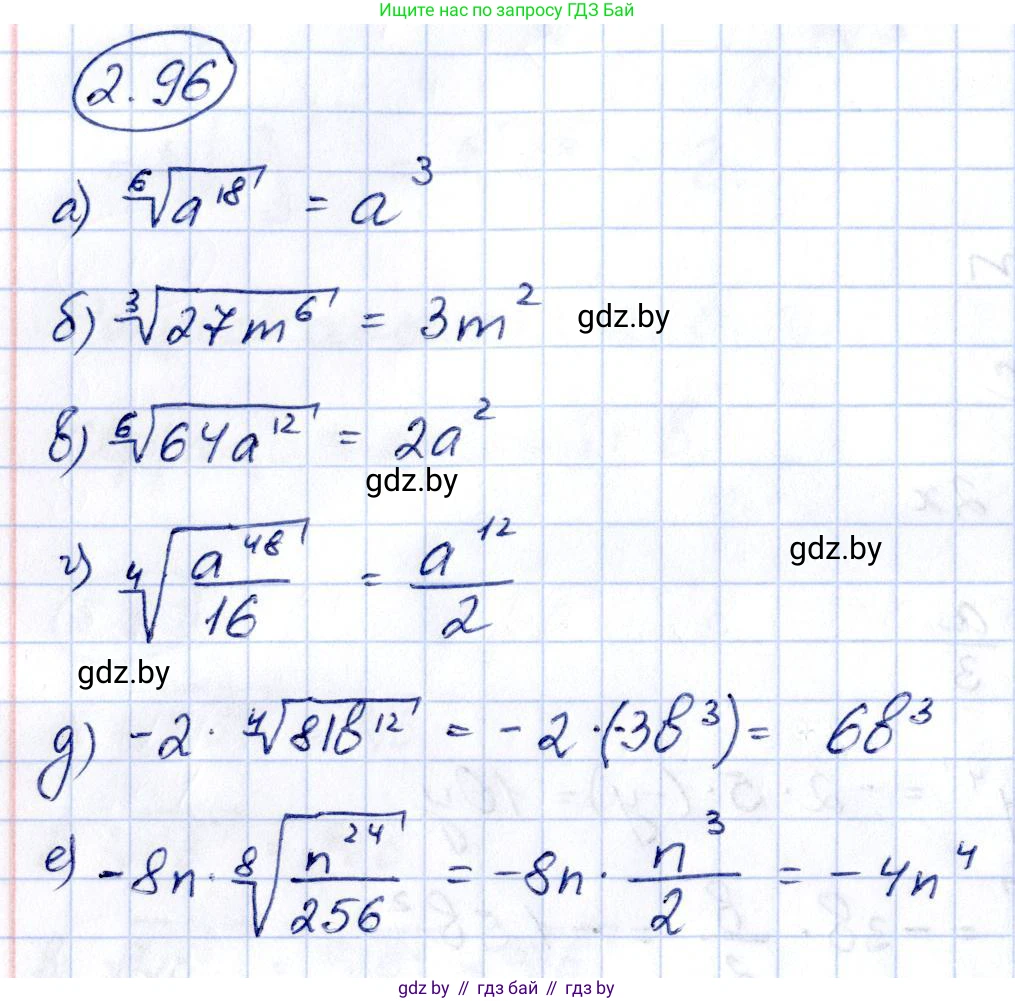 Ищите нас по запросу ГДЗ Бай
2.96
а) ⁶√a¹⁸ = a³
б) ³√27m⁶ = 3m² gdz.by
в) ⁶√64a¹² = 2a²
gdz.by
г) ⁴√(a⁴⁸/16) = a¹²/2 gdz.by
gdz.by
д) -2 · ⁴√81b¹² = -2·(-3b³) = 6b³
е) -8n · ⁸√(n²⁴/256) = -8n · n³/2 = -4n⁴
gdz.by // гдз бай // гдз by